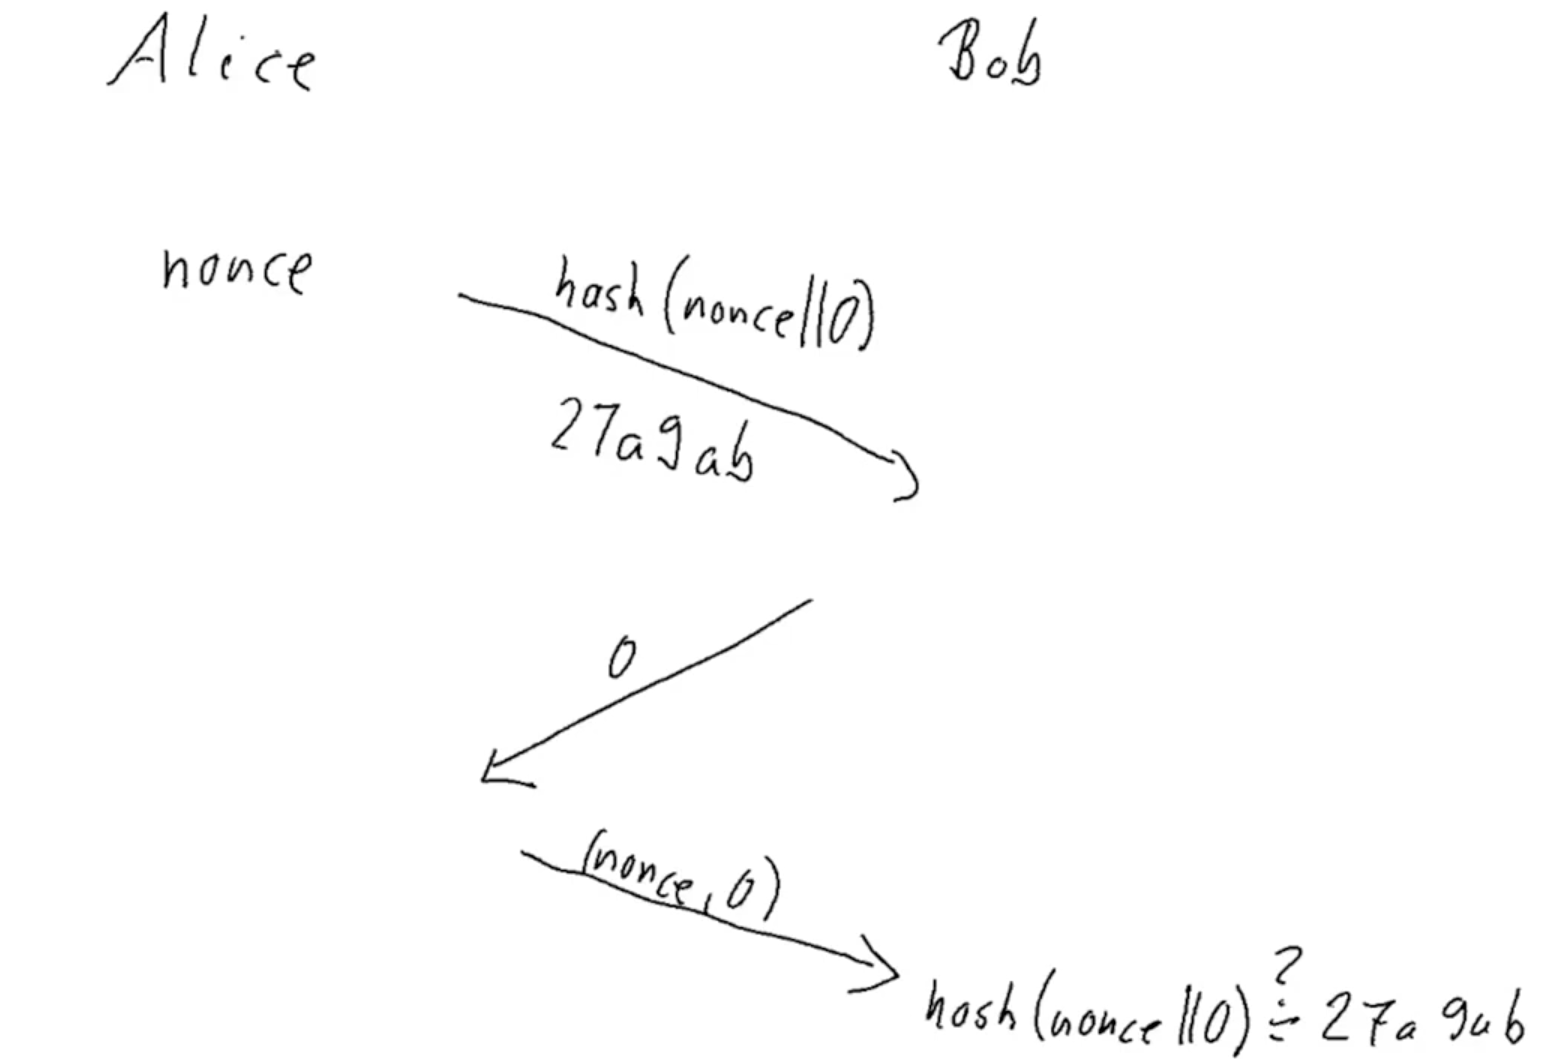 Alice Bob
nonce
hash (nonce||0)
27a9ab
0
(nonce, 0)
hash (nonce ||0) ?= 27a 9ab